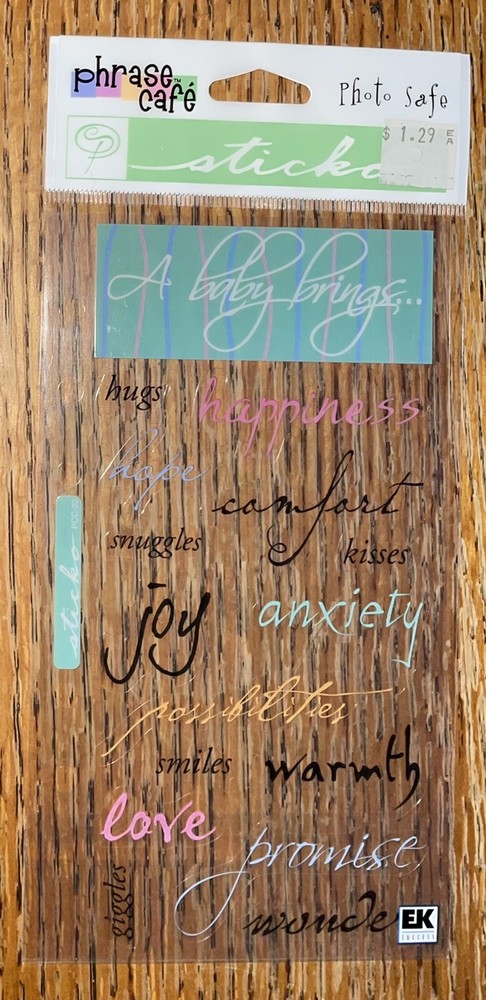 phrase café™
Photo Safe
$1.29 EA
sticko
A baby brings...
hugs
happiness
hope
comfort
snuggles
kisses
sticko
joy
anxiety
possibilities
smiles
warmth
love
promise
giggles
wonde
EK
SUCCESS